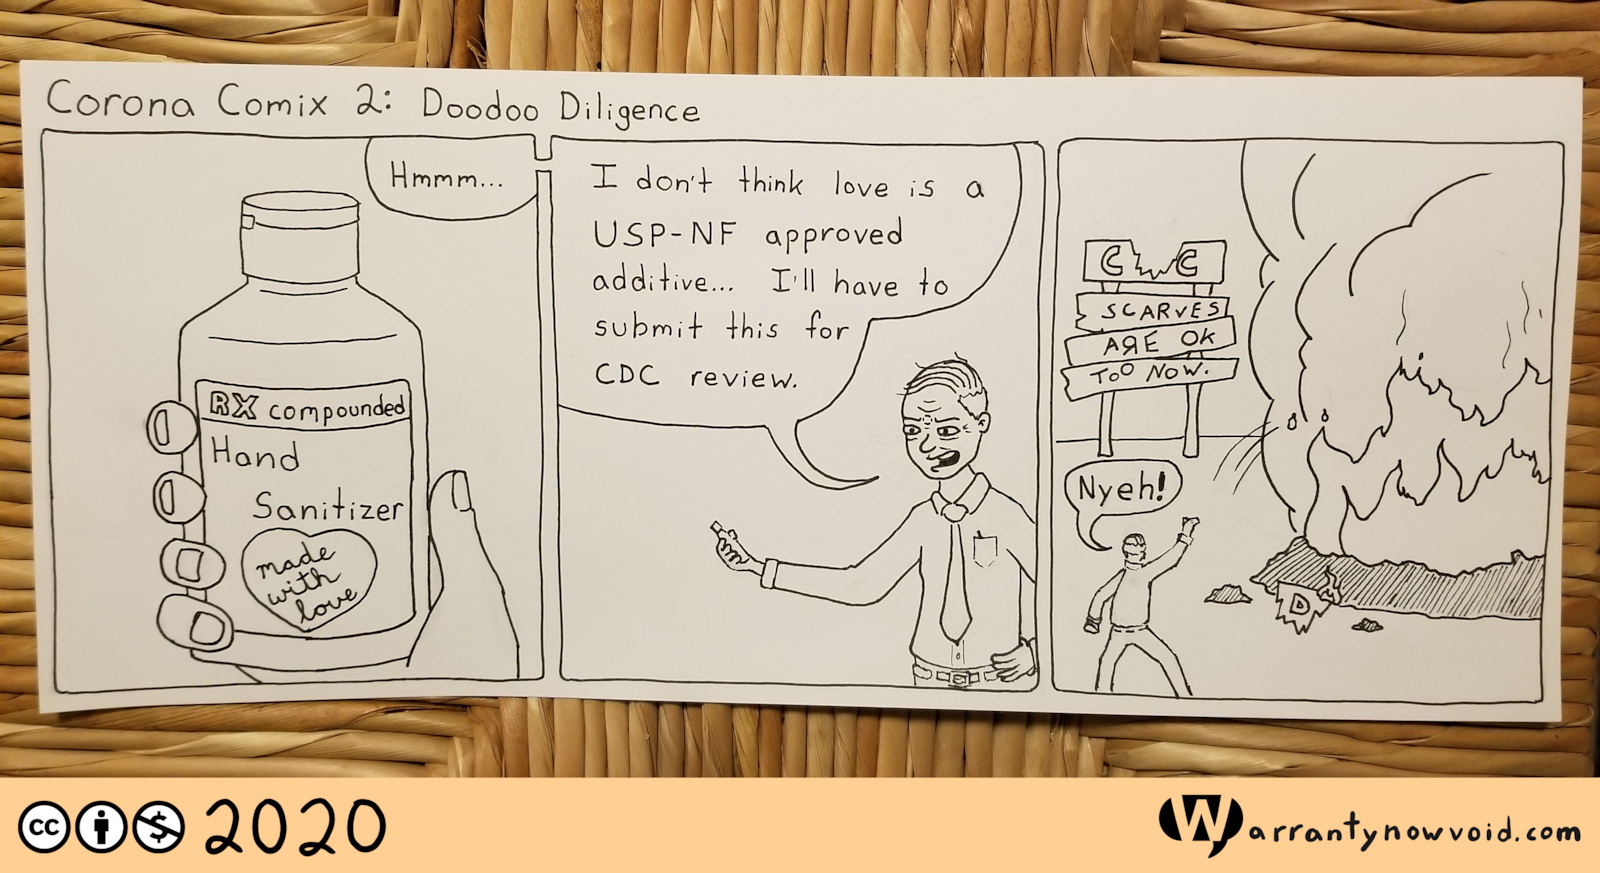 Corona Comix 2: Doodoo Diligence
Hmmm...
RX compounded
Hand
Sanitizer
made
with
love
I don't think love is a
USP-NF approved
additive... I'll have to
submit this for
CDC review.
C C
SCARVES
AЯE OK
TOO NOW.
Nyeh!
D
cc
2020
Warrantynowvoid.com